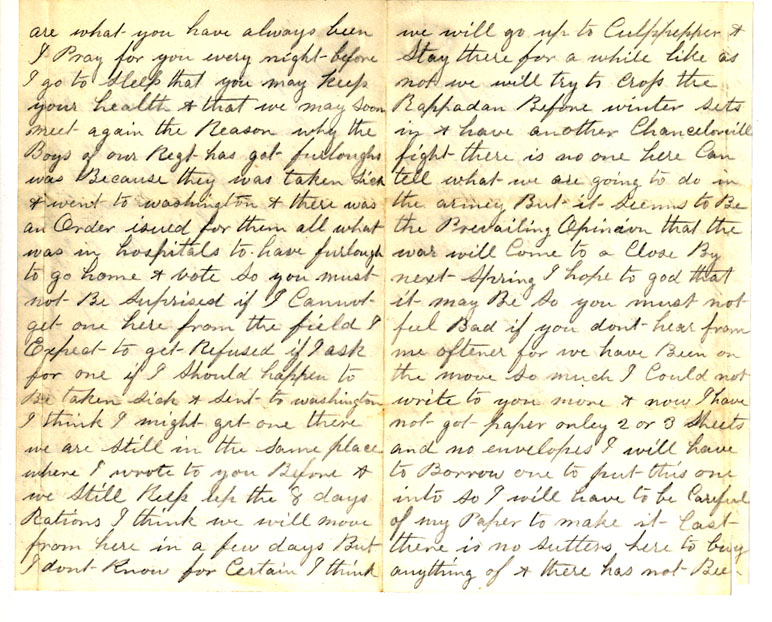 are what you have always been
I Pray for you every night before
I go to sleep that you may keep
your health & that we may soon
meet again the Reason why the
Boys of our Regt has got furloughs
was Because they was taken sick
& went to washington & there was
an Order issued for them all what
was in hospitals to have furlough
to go home & vote so you must
not Be suprised if I Cannot
get one here from the field I
Expect to get Refused if I ask
for one if I should happen to
Be taken sick & sent to washington
I think I might get one there
we are still in the same place
where I wrote to you Before &
we still keep up the 8 days
Rations I think we will move
from here in a few days But
I dont Know for Certain I think
we will go up to Culppepper &
Stay there for a while like as
not we will try to Cross the
Rappadan Before winter sets
in & have another Chancelorvill
fight there is no one here Can
tell what we are going to do in
the armey But it seems to Be
the Prevailing Opinion that the
war will Come to a Close By
next Spring I hope to god that
it may Be so you must not
feel Bad if you dont hear from
me oftener for we have Been on
the move so much I Could not
write to you more & now I have
not got paper onley 2 or 3 sheets
and no envelopes I will have
to Borrow one to put this one
into so I will have to be Careful
of my Paper to make it Last
there is no sutters here to buy
anything of & there has not Bee